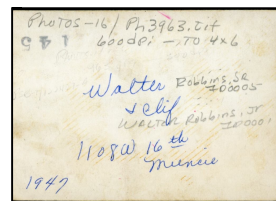 Photos-16/Ph3963.tif
145 600dpi - TO 4x6
Walter Robbins, SR
ID0005
& Clif
WALTER Robbins, Jr
ID0001
1108 W 16th
Muncie
1947